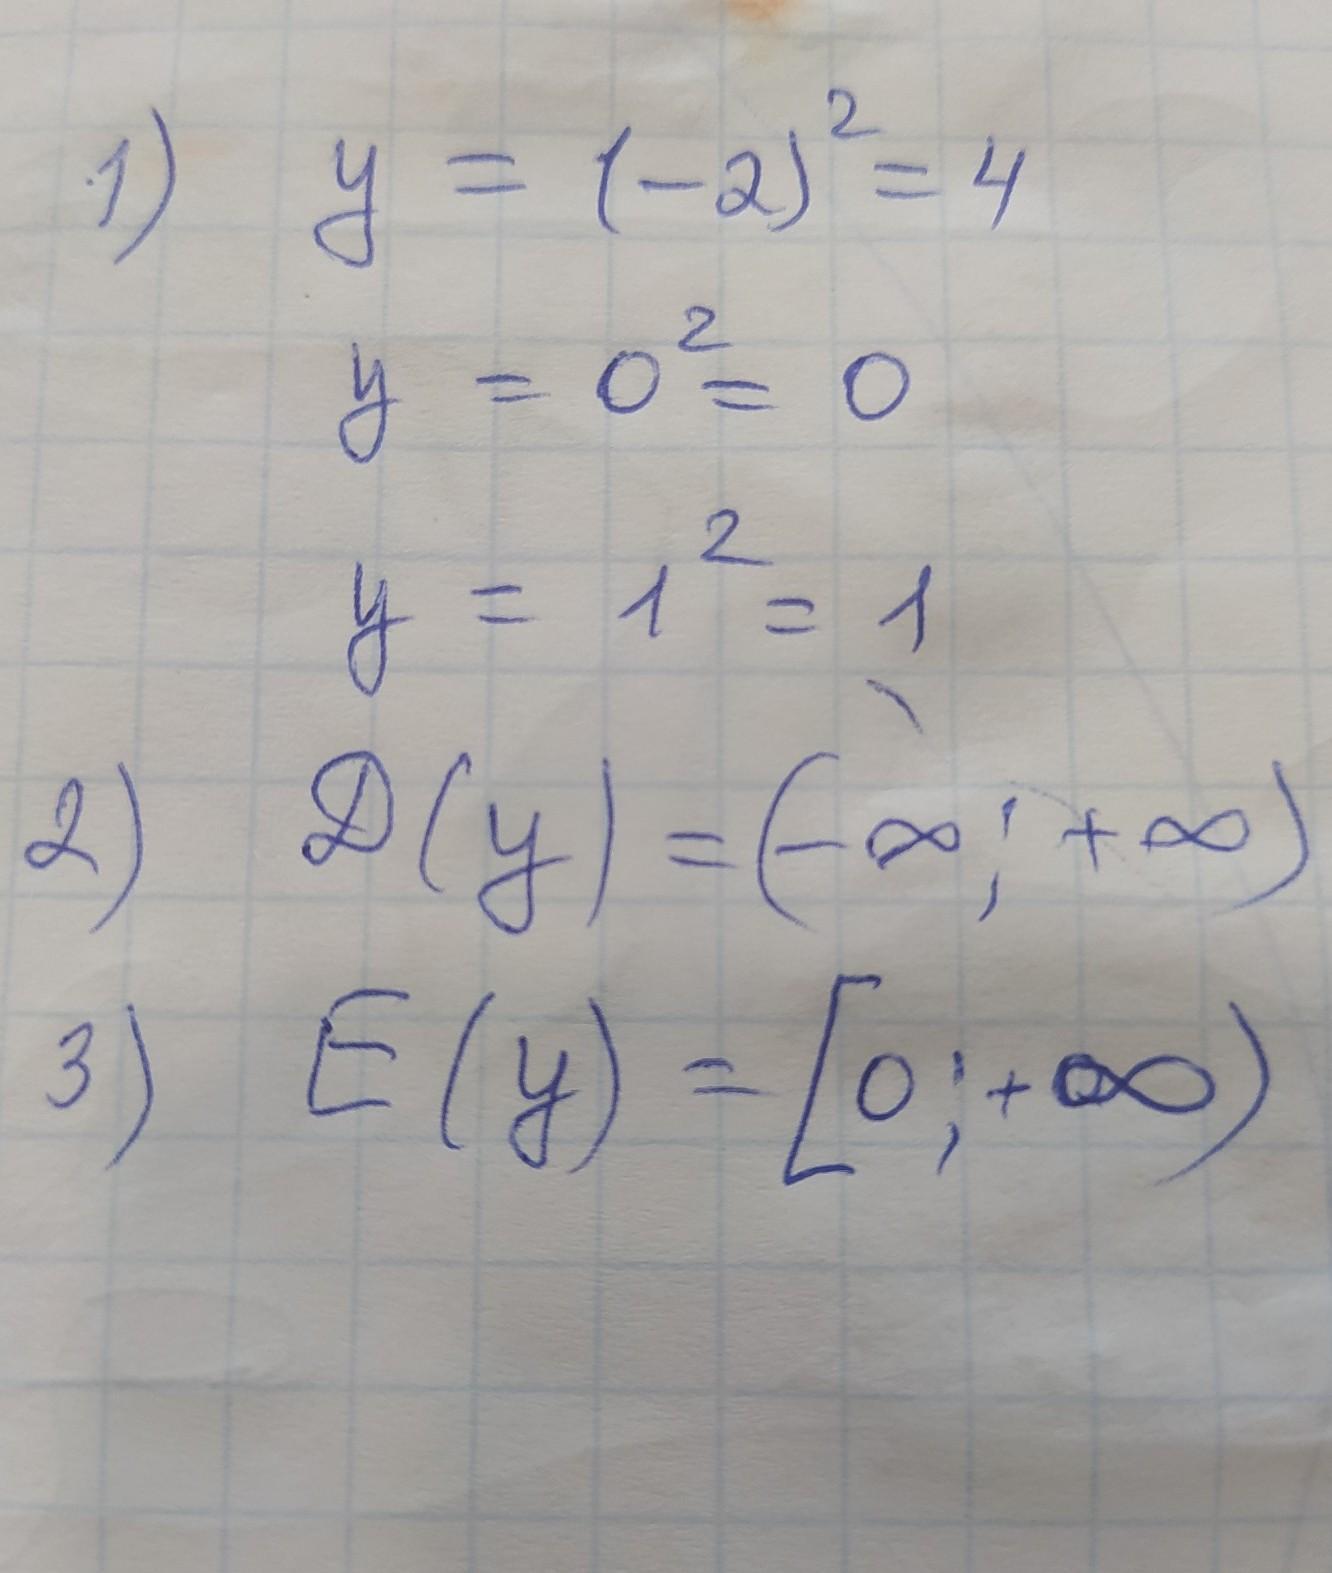 1) y = (-2)² = 4
y = 0² = 0
y = 1² = 1
2) D(y) = (-∞; +∞)
3) E(y) = [0; +∞)